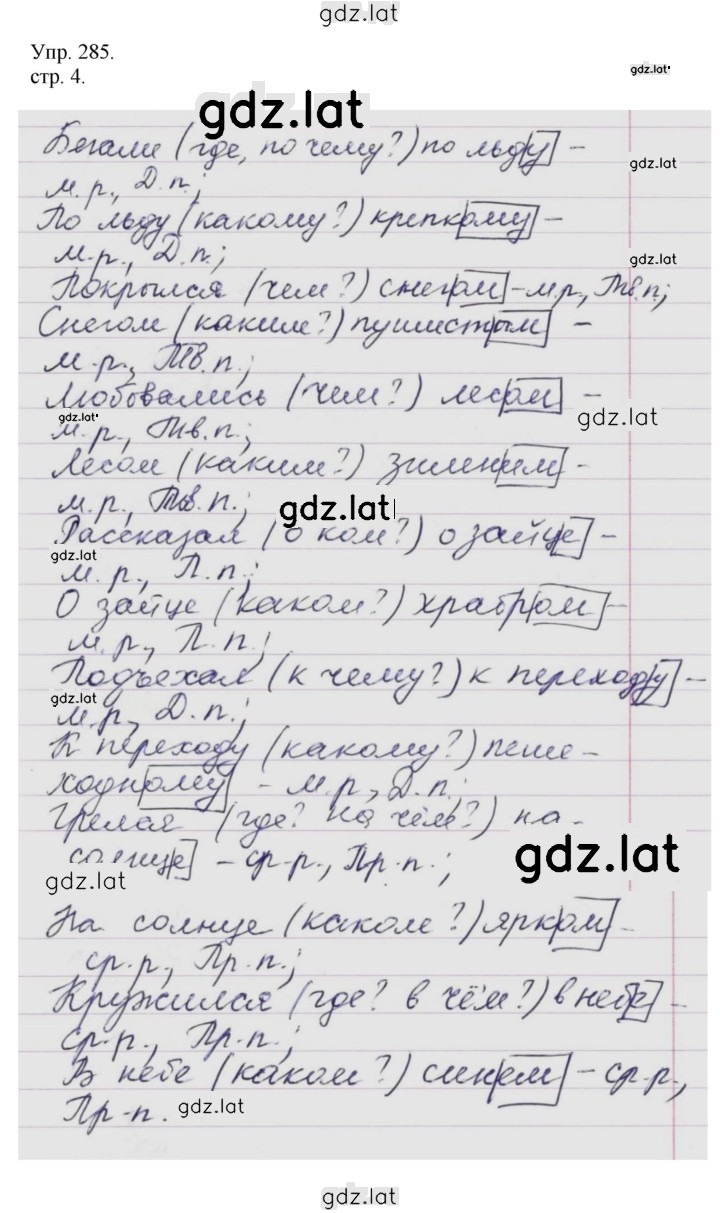 gdz.lat
Упр. 285.
стр. 4.
gdz.lat
gdz.lat
Бегали (где, по чему?) по льду –
gdz.lat
м.р., Д.п.;
По льду (какому?) крепкому –
м.р., Д.п.;
gdz.lat
Покрылся (чем?) снегом – м.р., Тв.п.;
Снегом (каким?) пушистым –
м.р., Тв.п.;
Любовались (чем?) лесом –
gdz.lat
gdz.lat
м.р., Тв.п.;
Лесом (каким?) зимним –
м.р., Тв.п.;
gdz.lat
Рассказал (о ком?) о зайце –
gdz.lat
м.р., П.п.;
О зайце (каком?) храбром –
м.р., П.п.;
Подъехал (к чему?) к переходу –
gdz.lat
м.р., Д.п.;
К переходу (какому?) пеше-
ходному – м.р., Д.п.;
Грелся (где? на чём?) на
солнце – ср.р., Пр.п.;
gdz.lat
gdz.lat
На солнце (каком?) ярком –
ср.р., Пр.п.;
Кружился (где? в чём?) в небе –
ср.р., Пр.п.;
В небе (каком?) синем – ср.р.,
Пр.п.
gdz.lat
gdz.lat